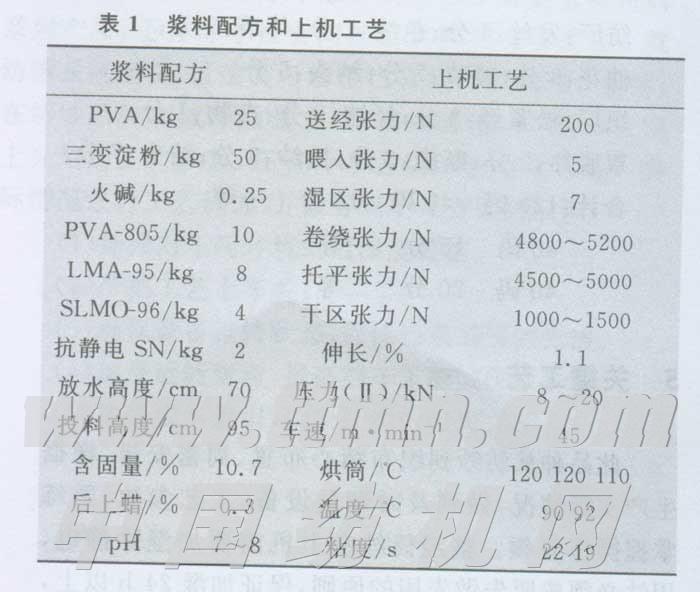 表 1 浆料配方和上机工艺
浆料配方 上机工艺
PVA/kg 25 送经张力/N 200
三变淀粉/kg 50 喂入张力/N 5
火碱/kg 0.25 湿区张力/N 7
PVA-805/kg 10 卷绕张力/N 4800～5200
LMA-95/kg 8 托平张力/N 4500～5000
SLMO-96/kg 4 干区张力/N 1000～1500
抗静电 SN/kg 2 伸长/% 1.1
放水高度/cm 70 压力(Ⅱ)/kN 8～20
投料高度/cm 95 车速/m·min⁻¹ 45
含固量/% 10.7 烘筒/℃ 120 120 110
后上蜡/% 0.3 温度/℃ 90 92
pH 7～8 粘度/s 22 19
中国纺机网